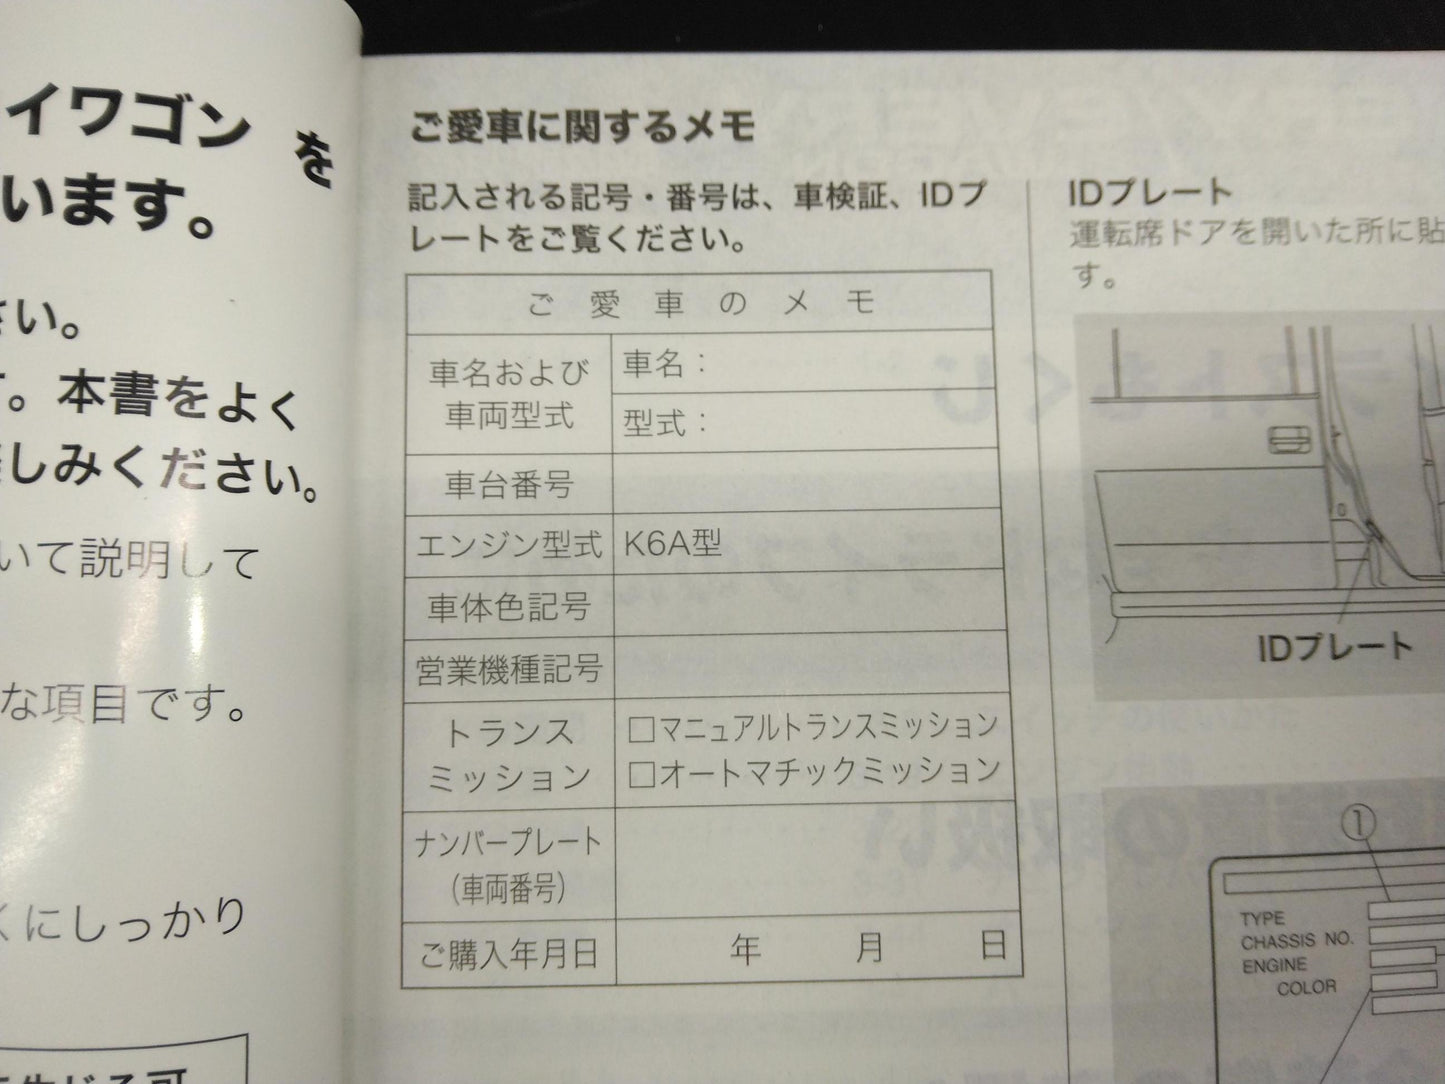 イワゴン を
います。
さい。
す。本書をよく
しみください。
いて説明して
な項目です。
くにしっかり
ご愛車に関するメモ
記入される記号・番号は、車検証、IDプ
レートをご覧ください。
ご愛車のメモ
車名および
車両型式
車名：
型式：
車台番号
エンジン型式 K6A型
車体色記号
営業機種記号
トランス
ミッション
□マニュアルトランスミッション
□オートマチックミッション
ナンバープレート
（車両番号）
ご購入年月日 年 月 日
IDプレート
運転席ドアを開いた所に貼
す。
IDプレート
①
TYPE
CHASSIS NO.
ENGINE
COLOR